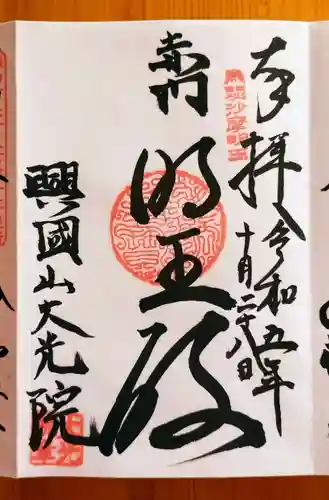 奉拝
令和五年
十月二十八日
赤門
明王殿
興國山大光院